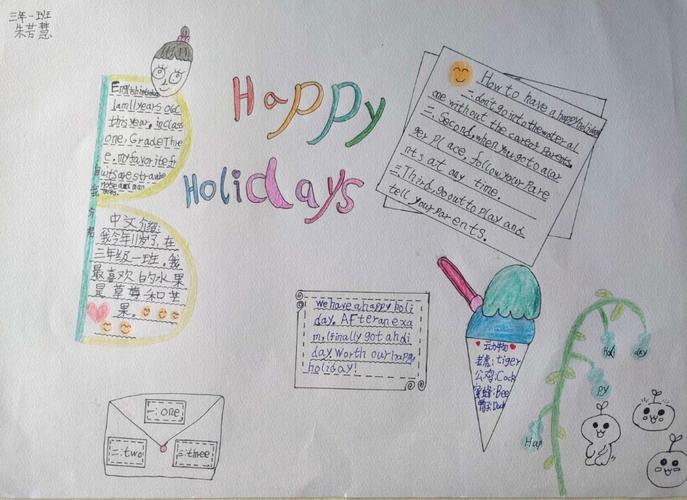 三年一班
朱若慧
Happy
Holidays
I am 11 years old
this year. in class
one. Grade Thre
e. my favorite fr
uits are strawbe
中文介绍:
我今年11岁了,在
三年级一班,我
最喜欢的水果
是草莓和苹
果。
How to have a happy holiday
one without the career Parents.
二. Second, when you go to alar
ger Place, follow your Pare
nts at any time.
三. Third, go out to play and
tell your Parents.
we have a happy holi
day. AFter an exa
m, I finally got aholi
day. Worth our happy
holiday!
动物
老虎:tiger
公鸡:Cock
蜜蜂:Bee
鸭子:Duck
一:one
二:two
三:three
Holi
day
Py
Hap